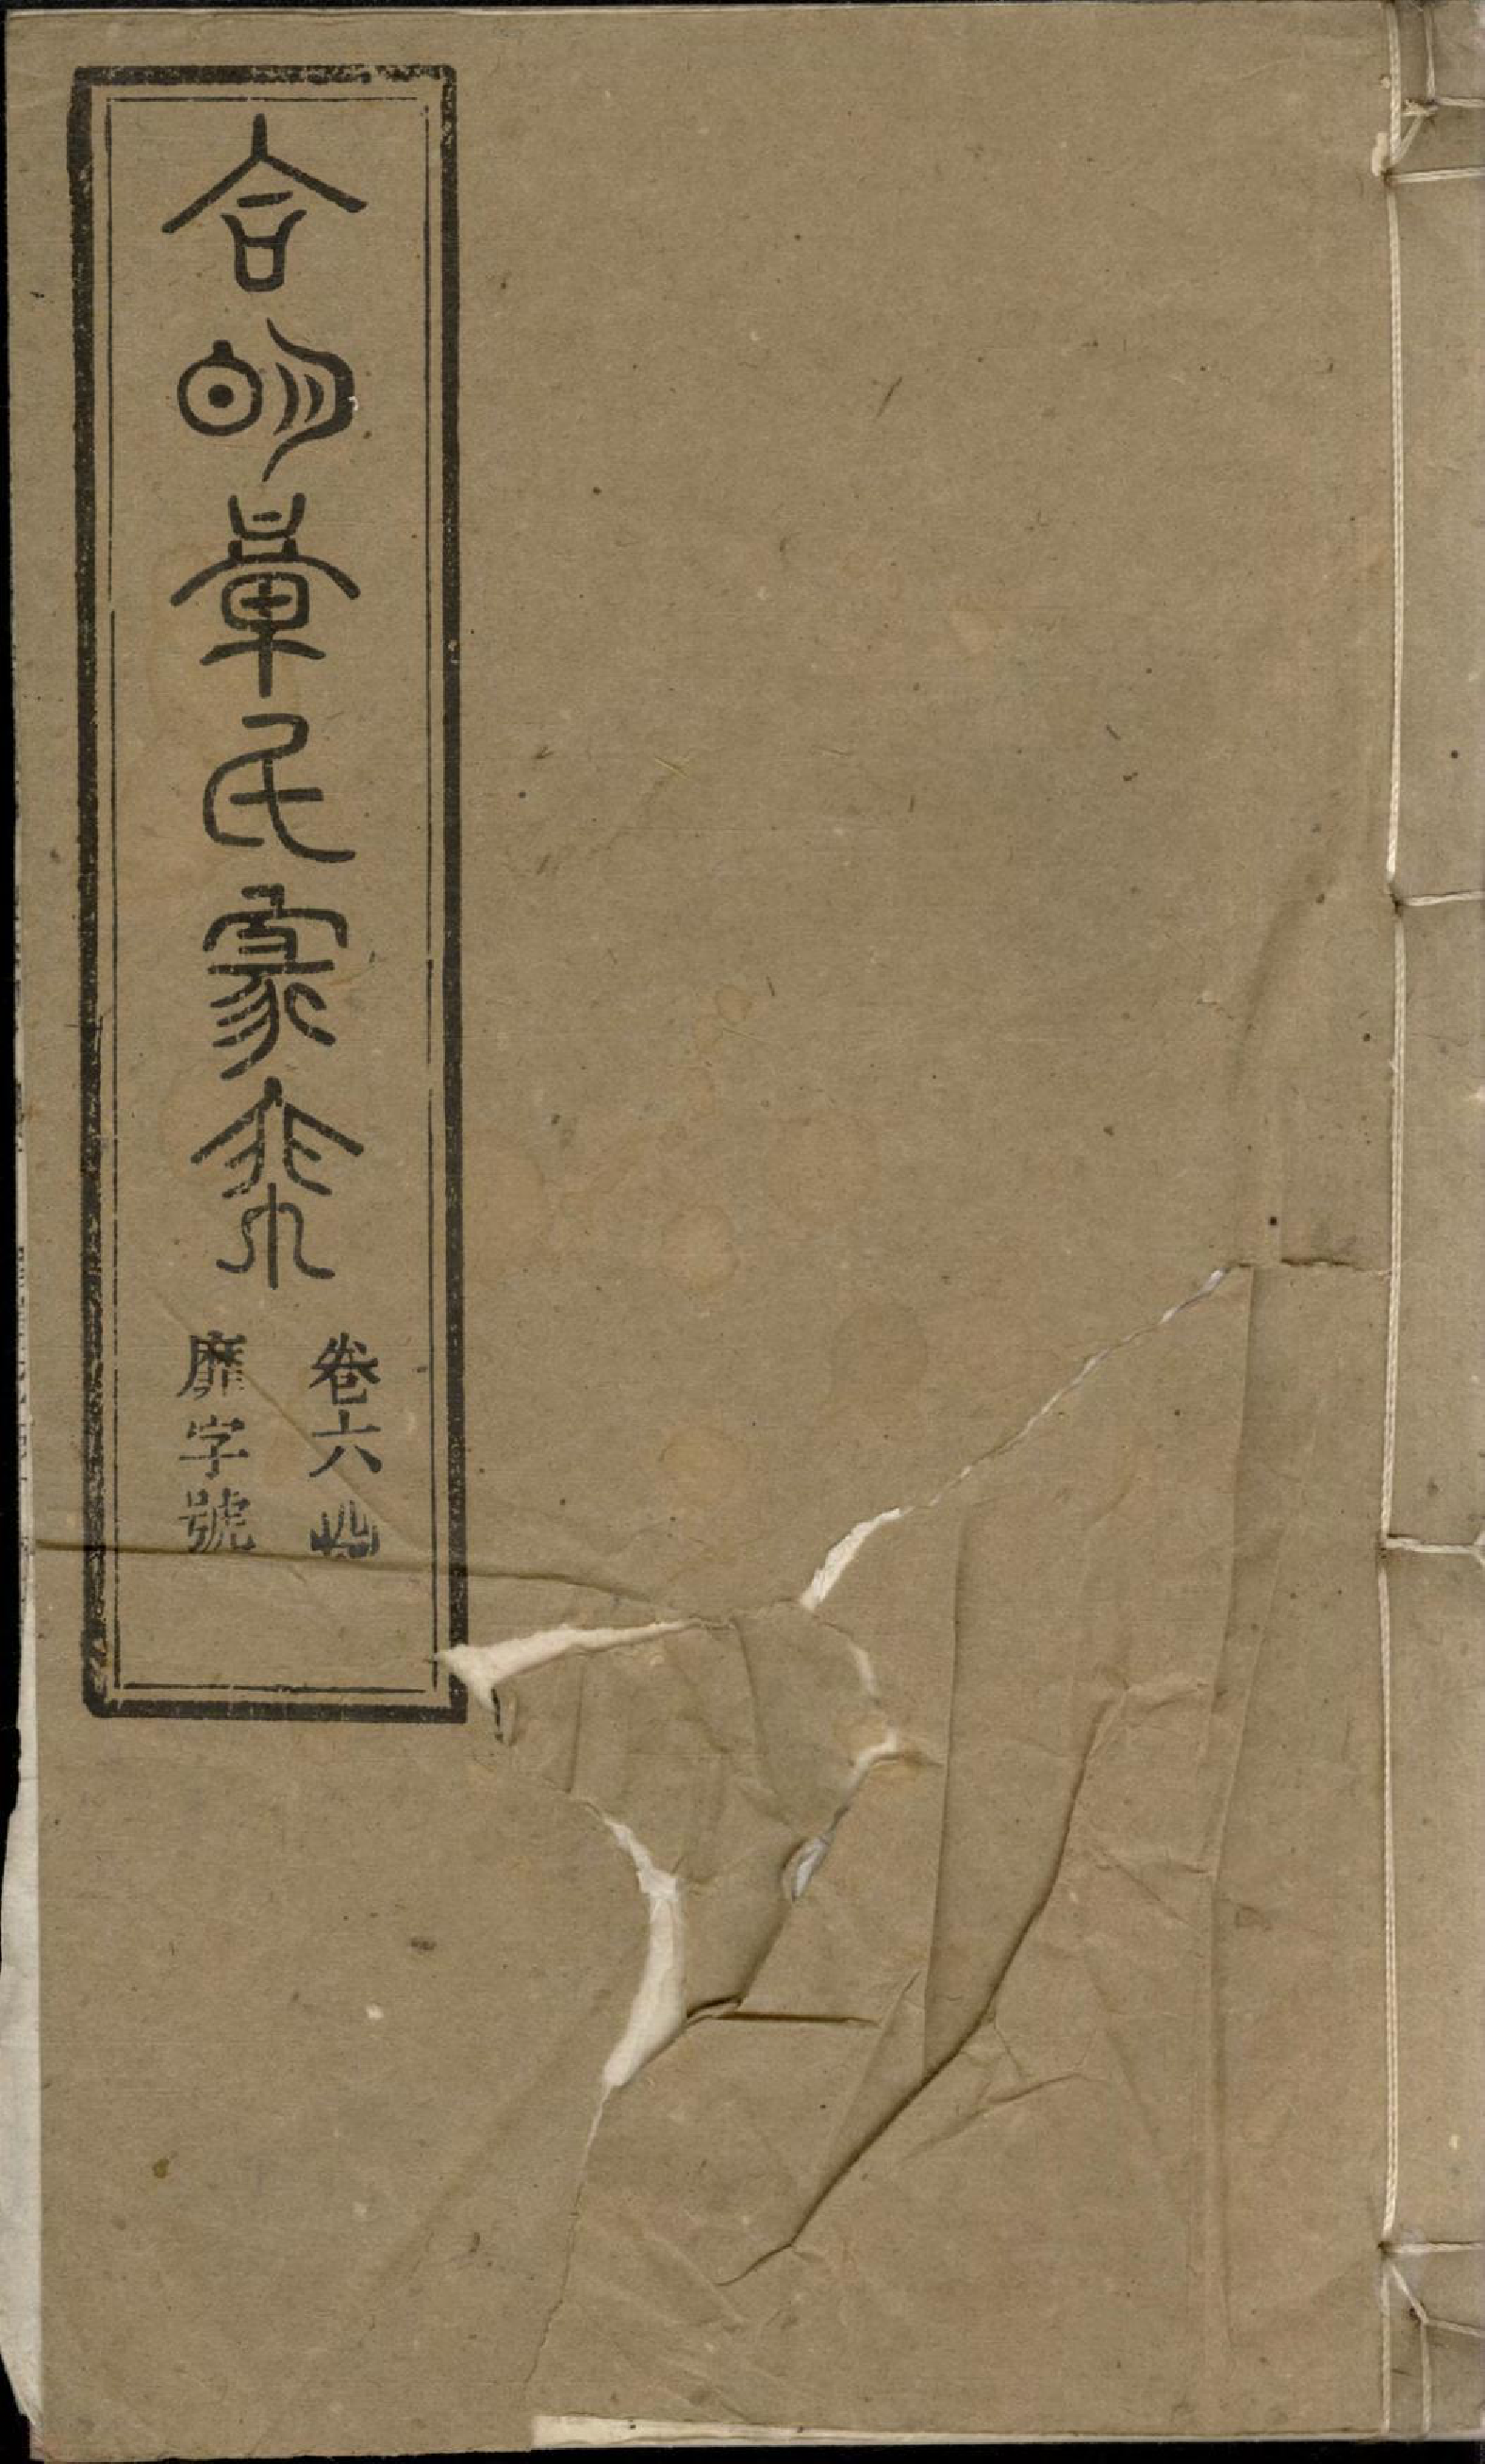 合明章氏家乘
卷六
靡字號